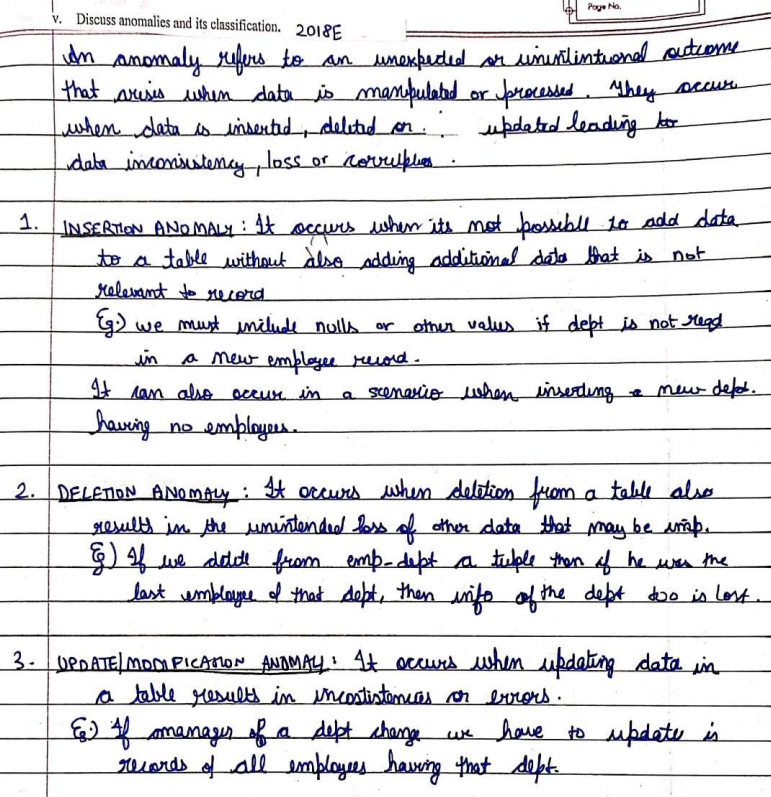 Page No.
v. Discuss anomalies and its classification. 2018E
An anomaly refers to an unexpected or unintintional outcome
that arisis when data is manipulated or processed. They occur
when data is inserted, deleted or updated leading to
data inconsistency, loss or corruption.
1. INSERTION ANOMALY : It occurs when its not possible to add data
to a table without also adding additional data that is not
relevant to record
Eg:) we must include nulls or other values if dept is not reqd
in a new employee record.
It can also occur in a scenario when inserting a new dept.
having no employees.
2. DELETION ANOMALY : It occurs when deletion from a table also
results in the unintended loss of other data that may be imp.
Eg) If we delete from emp-dept a tuple then if he was the
last employee of that dept, then info of the dept too is lost.
3. UPDATE/MODIFICATION ANOMALY : It occurs when updating data in
a table results in incostistencies or errors.
Eg:) If manager of a dept change we have to update is
records of all employees having that dept.